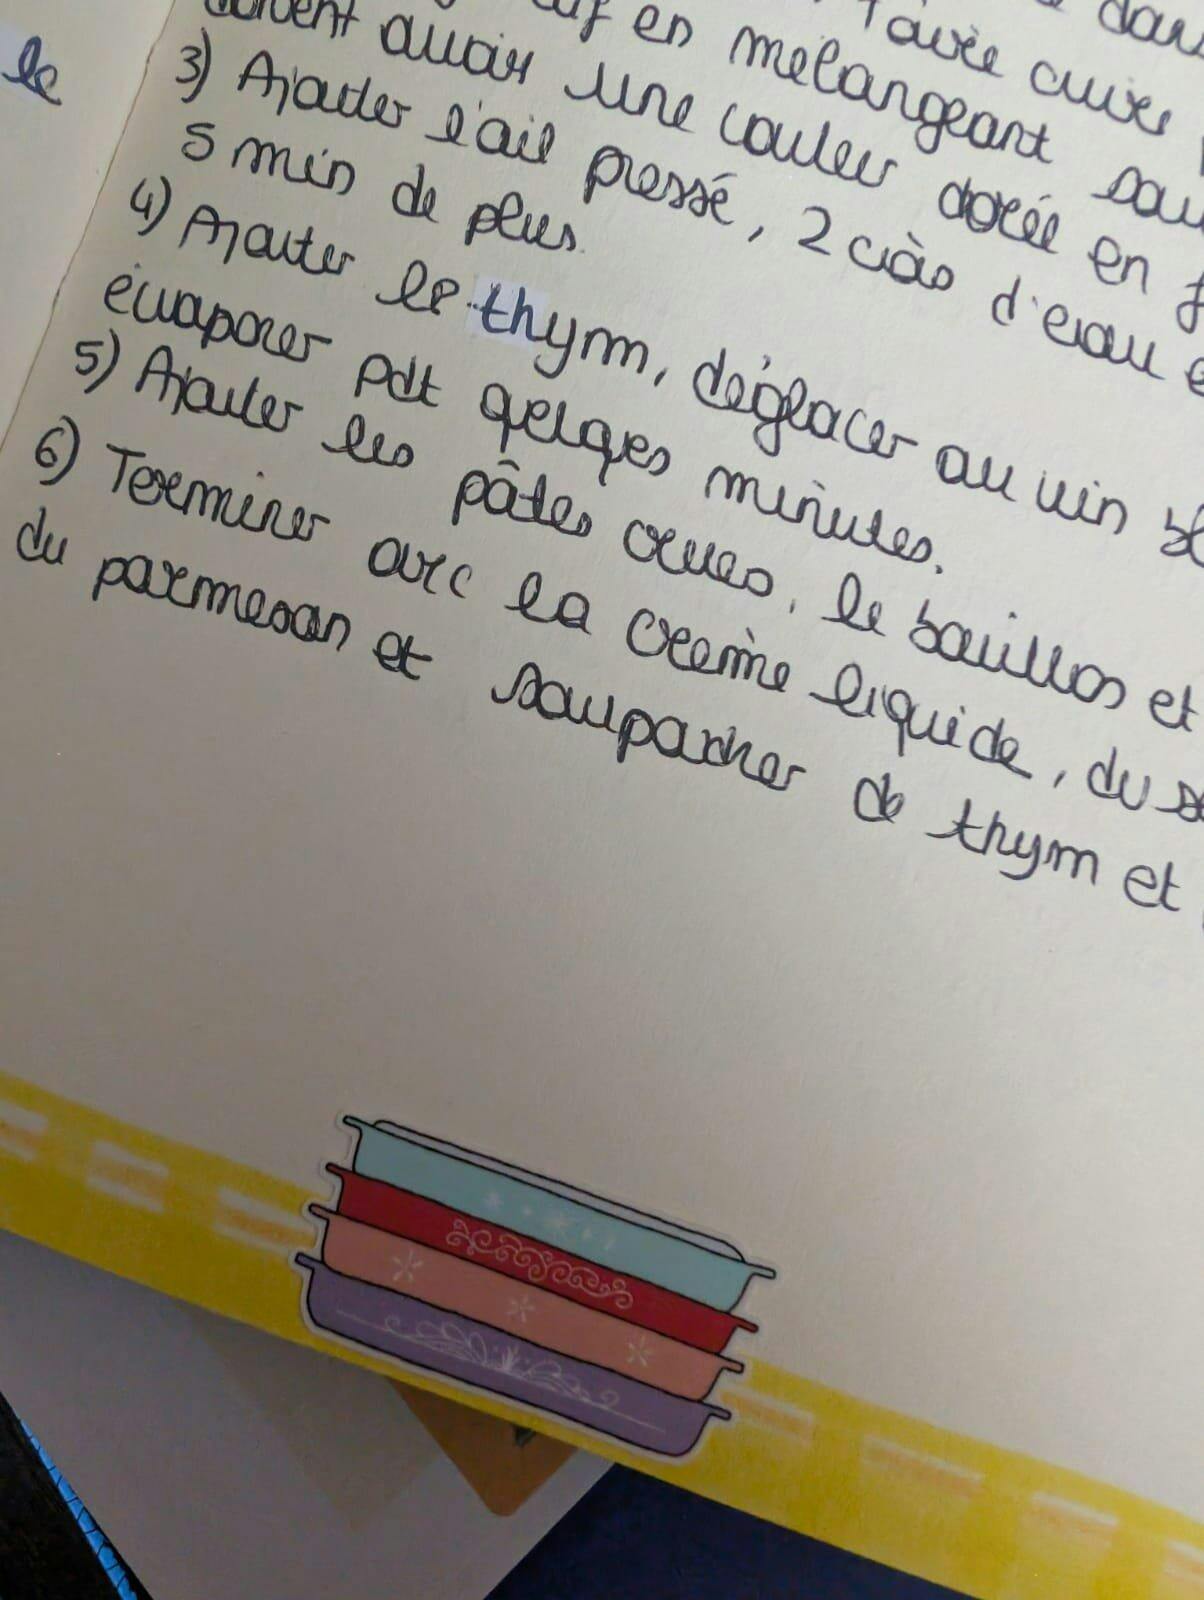 le
dans
faire cuire
en mélangeant
doivent avoir une couleur dorée en
3) Ajouter l'ail pressé, 2 càs d'eau
5 min de plus.
4) Ajouter le thym, déglacer au vin
évaporer pdt qelqes minutes.
5) Ajouter les pâtes crues, le bouillon et
6) Terminer avec la crème liquide, du
du parmesan et saupoudrer de thym et